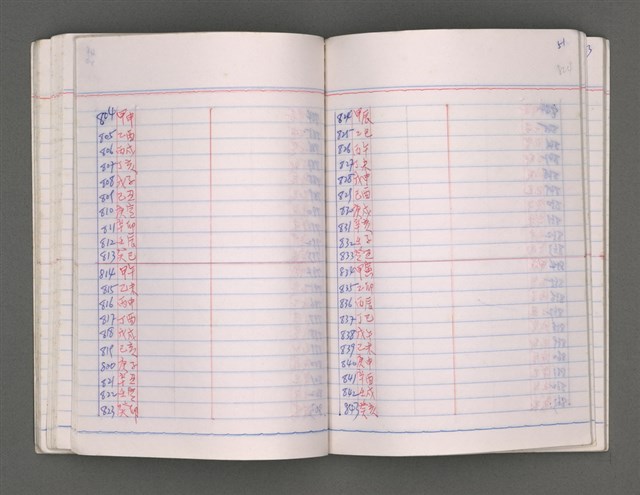 804 甲申
805 乙酉
806 丙戌
807 丁亥
808 戊子
809 己丑
810 庚寅
811 辛卯
812 壬辰
813 癸巳
814 甲午
815 乙未
816 丙申
817 丁酉
818 戊戌
819 己亥
820 庚子
821 辛丑
822 壬寅
823 癸卯
51
824 甲辰
825 乙巳
826 丙午
827 丁未
828 戊申
829 己酉
830 庚戌
831 辛亥
832 壬子
833 癸丑
834 甲寅
835 乙卯
836 丙辰
837 丁巳
838 戊午
839 己未
840 庚申
841 辛酉
842 壬戌
843 癸亥
3